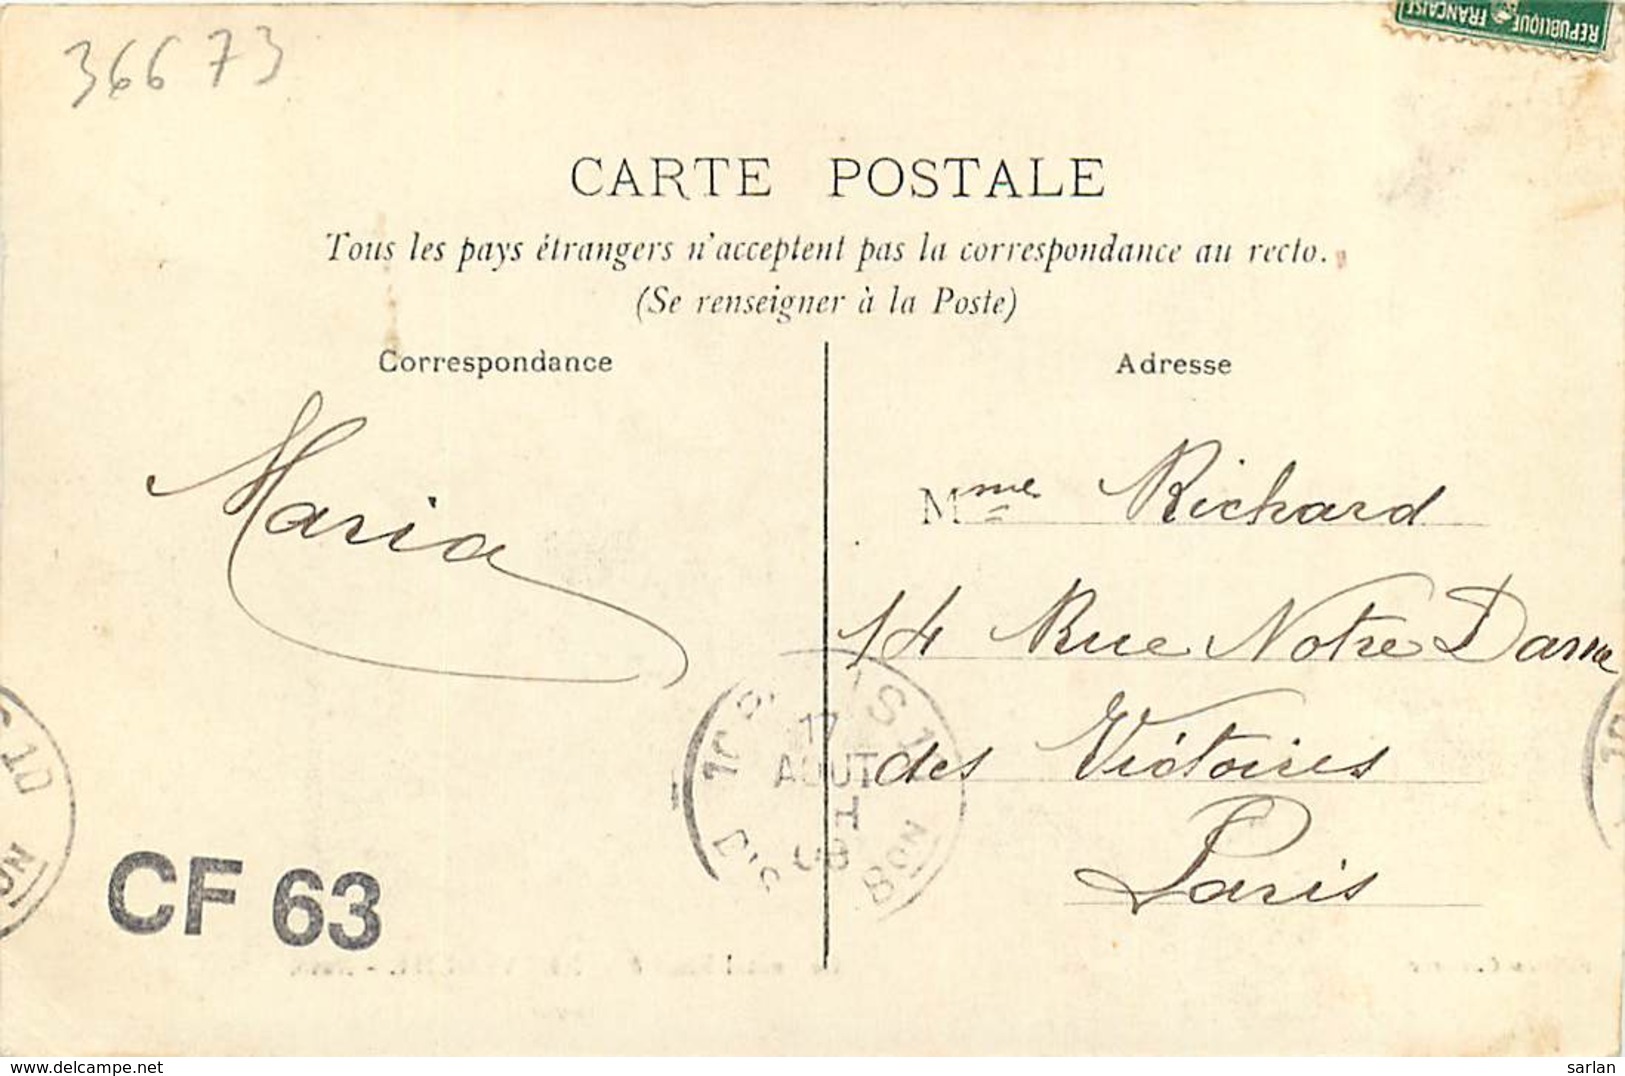 REPUBLIQUE FRANÇAISE
36673
CARTE POSTALE
Tous les pays étrangers n'acceptent pas la correspondance au recto.
(Se renseigner à la Poste)
Correspondance
Adresse
Maria
Mme Richard
14 Rue Notre Dame
des Victoires
Paris
17
AOUT
CF 63
delcampe.net
sarlan